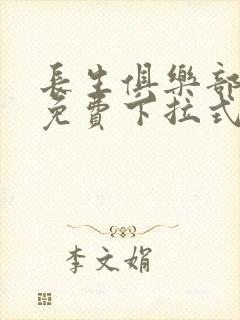 長生俱樂部
免費下拉式
李文娟